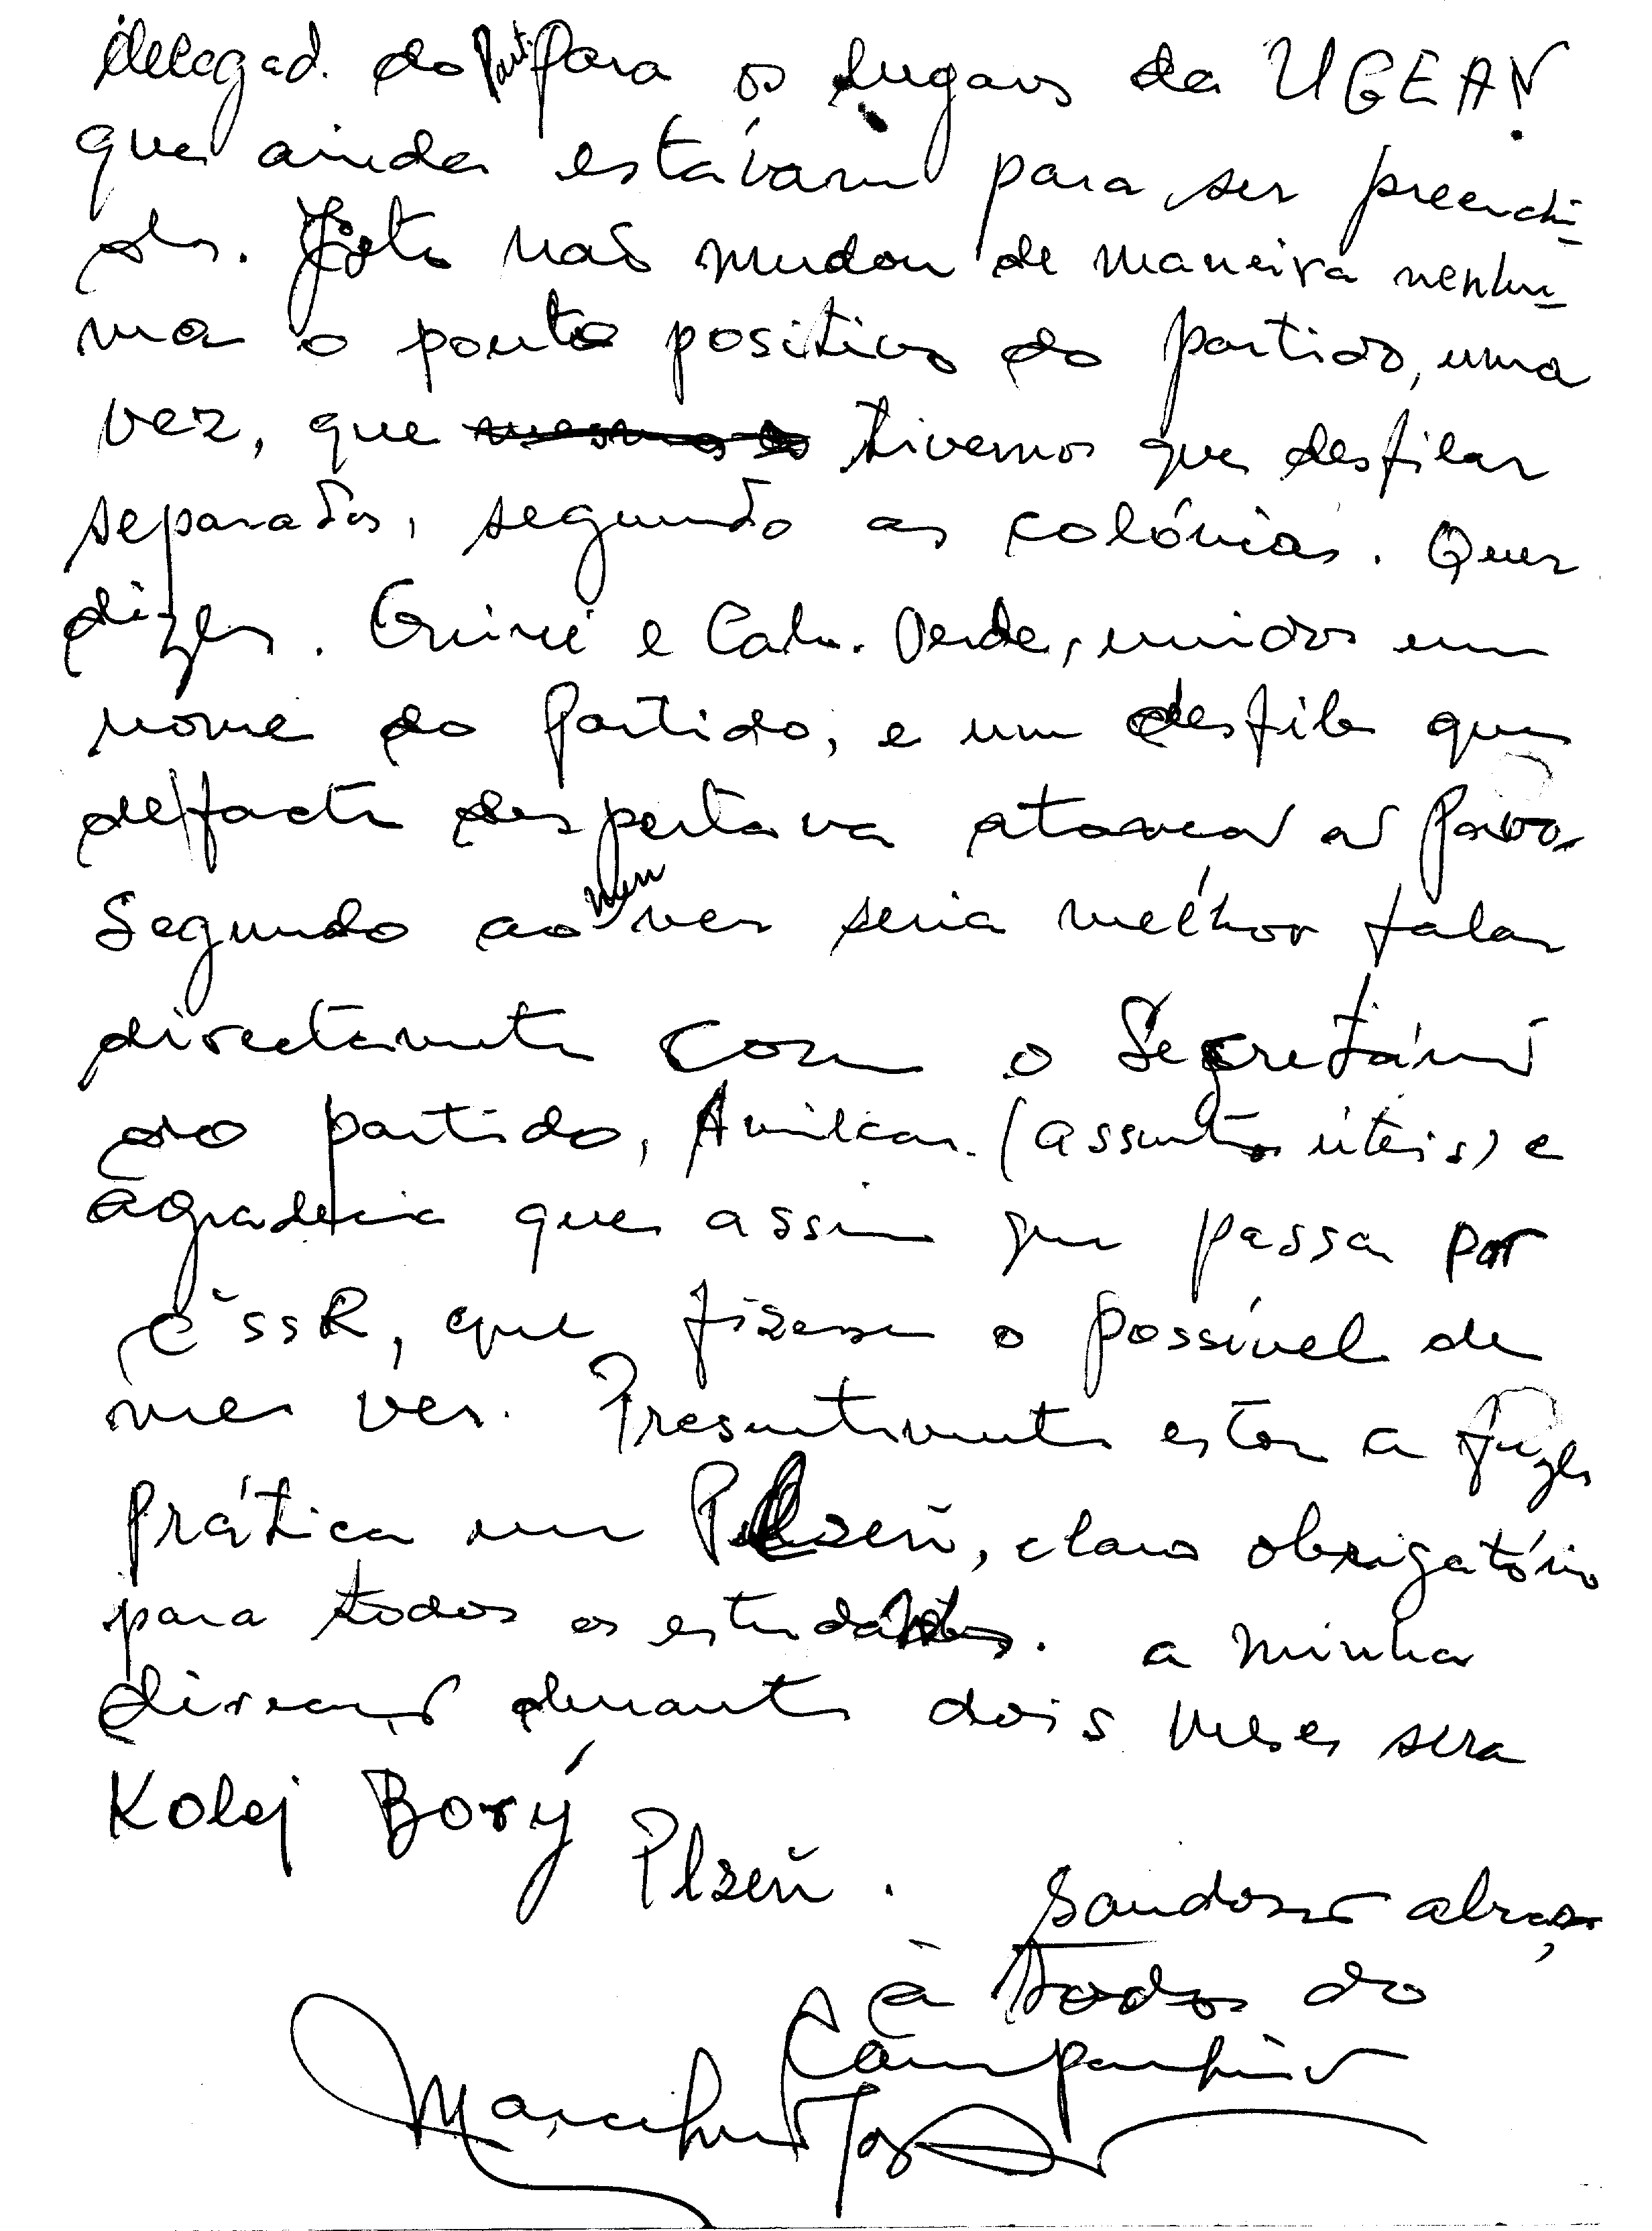 delegad. do Part. Para os lugares da UGEAN
que ainda estávam para ser preenchi-
dos. Isto não mudou de maneira nenhu-
ma o ponto positivo do partido, uma
vez, que tivemos que desfilar
separados, segundo as colónias. Quer
dizer. Guiné e Cabo. Verde, unidos em
nome do Partido, e um desfile que
de facto despertava atenção ao Povo.
Segundo ao meu ver seria melhor falar
directamente com o Secretário
do partido, Amilcar. (assuntos úteis) e
agradecia que assim que passar por
ČSSR, que fizesse o possível de
me ver. Presentemente estou a fazer
prática em Plzeň, claro obrigatório
para todos os estudantes. a minha
direcção durante dois meses sera
Kolej Borý
Plzeň. Saudoso abraço,
à todos do
Companheiro